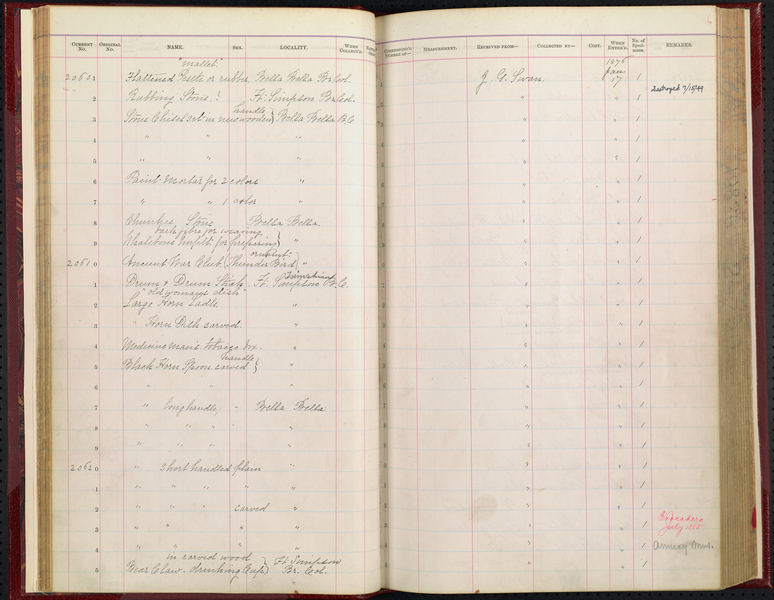 CURRENT No. ORIGINAL No. NAME. SEX. LOCALITY. WHEN COLLECT'D.
MEASUREMENT. RECEIVED FROM— COLLECTED BY— COST. WHEN ENTER'D. No. of Specimens. REMARKS.
"mallet" 1876
20601 Flattened Pestle or rubber Bella Bella Br. Col. 1 J. G. Swan. Jan 17 1
2 Rubbing Stone! Ft. Simpson Br. Col. 2 " " 1 Destroyed 7/15/49
handle
3 Stone Chisel set in new wooden} Bella Bella B.C. 3 " " 1
4 " " " 4 " " 1
5 " " " 5 " " 1
6 Paint Mortar for 2 colors " 6 " " 1
7 " " 1 color " 7 " " 1
8 Chunkee Stone Bella Bella. 8 " " 1
bark fibre for weaving
9 Whalebone Implt. for preparing} " 9 " " 1
20610 Ancient War Club (Thunder Bird) " 0 " " 1
Tsimshian
1 Drum & Drum Stick. Ft. Simpson B. C. 1 " " 1
"old woman's dish"
2 Large Horn Ladle " 2 " " 1
3 " Horn Dish carved. " 3 " " 1
4 Medicine man's tobacco box. " 4 " " 1
handle
5 Black Horn Spoon carved} " 5 " " 1
6 " " " 6 " " 1
7 " long handle, " Bella Bella 7 " " 1
8 " " " " " 8 " " 1
9 " " " " 9 " " 1
20620 " short handled plain " 0 " " 1
1 " " " " " 1 " " 1
2 " " " carved " 2 " " 1
3 " " " " 3 " " 1 July 1885
4 " " " " 4 " " 1 Army Mus.
in carved wood Ft. Simpson
5 Bear Claw. drinking Cups} Br. Col. 5 " " 1